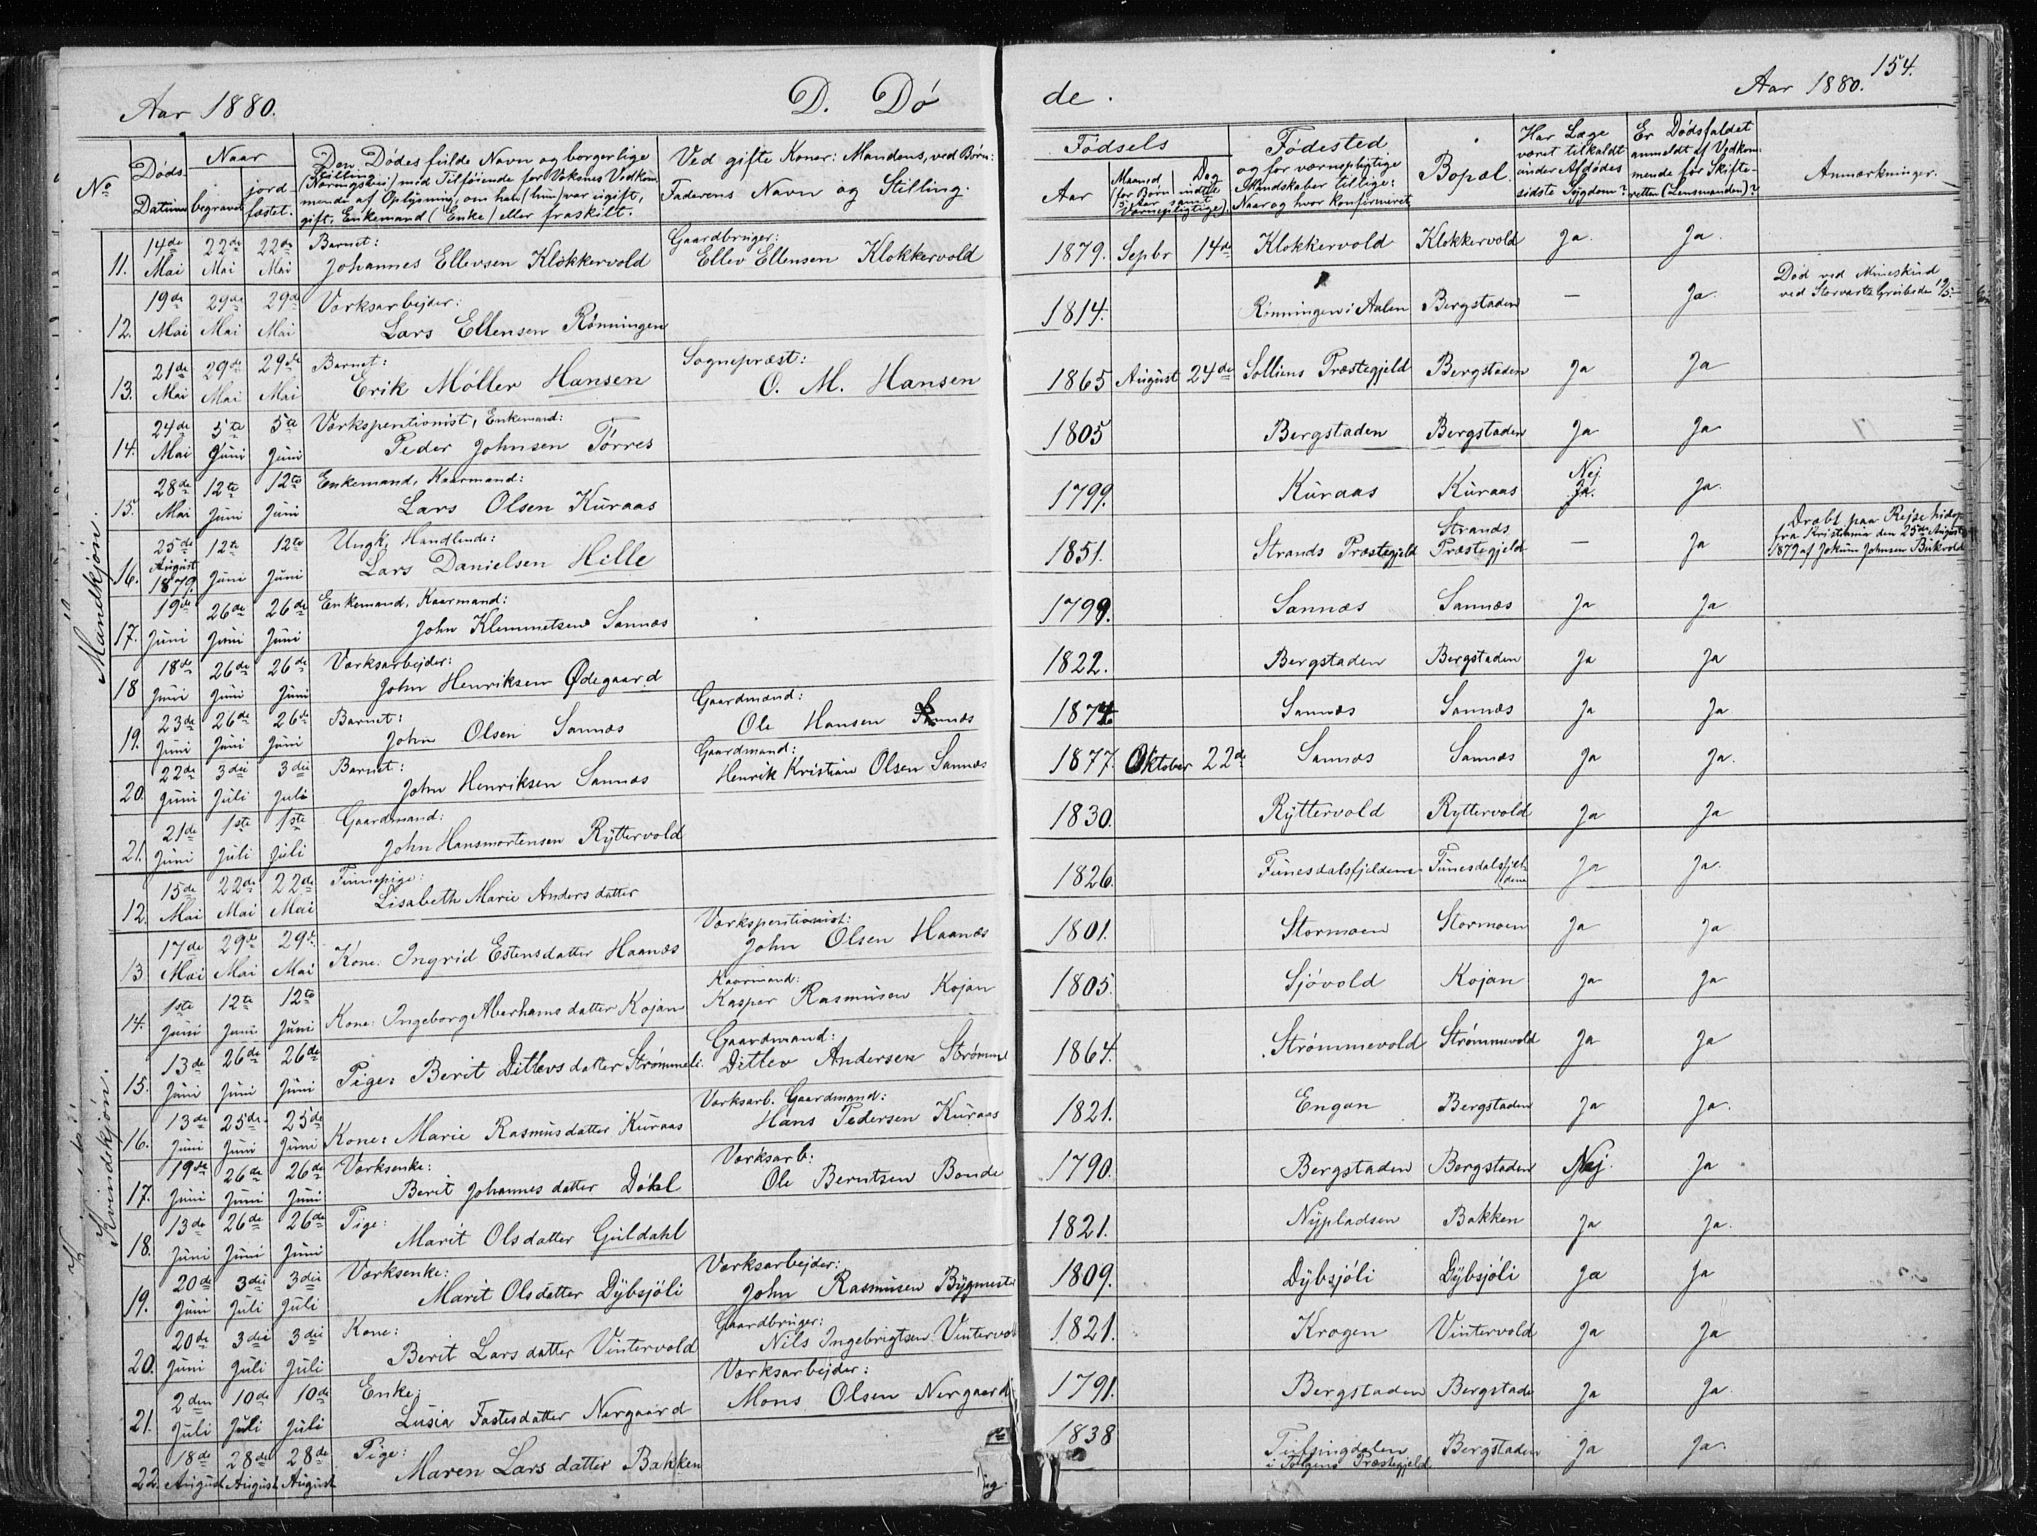 154.
Aar 1880. D. Dö de. Aar 1880.
No
Døds Datum
Naar
begravet
jord fæstet.
Den Dødes fulde Navn og borgerlige
Stilling
(Næringsvei) med Tilføiende for Voksnes Vedkom
mende af Oplysning, om han (hun) var ugift,
gift, Enkemand (Enke) eller fraskilt.
Ved gifte Koner: Mandens, ved Børn:
Faderens Navn og Stilling.
Fødsels
Aar
Maaned Dag
(for Børn indtil
5 Aar samt
Værnepligtige).
Fødested
og for værnepligtige
Mandskaber tillige:
Naar og hvor konfirmeret
Bopæl.
Har Læge
været tilkaldt
under Afdødes
sidste Sygdom?
Er Dødsfaldet
anmeldt af Vedkom
mende for Skifte-
retten (Lensmanden)?
Anmærkninger.
Mandkjøn.
11. 14de Mai 22de Mai 22de Mai Barnet: Johannes Ellevsen Klokkervold Gaardbruger: Ellev Ellensen Klokkervold 1879. Sepbr 14de Klokkervold Klokkervold Ja. Ja.
12. 19de Mai 29de Mai 29de Mai Værksarbejder: Lars Ellensen Rønningen 1814. Rønningen i Aalen Bergstaden — Ja. Død ved Mineskud ved Storvarts Grube den 19/5.
13. 21de Mai 29de Mai 29de Mai Barnet: Erik Møller Hansen Sognepræst: O. M. Hansen 1865 August 24de Solliens Præstegjeld Bergstaden Ja Ja
14. 24de Mai 5te Juni 5te Juni Værkspentionist, Enkemand: Peder Johnsen Tørres 1805 Bergstaden Bergstaden Ja Ja
15. 28de Mai 12te Juni 12te Juni Enkemand, Kaarmand: Lars Olsen Kuraas 1799. Kuraas Kuraas Nej Ja. Ja.
16. 25de August 1879. 12te Juni 12te Juni Ungk, Handlende: Lars Danielsen Hille 1851. Strands Præstegjeld Strands Præstegjeld — Ja Dræbt paa Rejse hidop fra Kristiania den 25de August 1879 af Jokum Johnsen Bukvold
17. 19de Juni 26de Juni 26de Juni Enkemand, Kaarmand: John Klemmetsen Sannæs 1799. Sannæs Sannæs Ja Ja
18 18de Juni 26de Juni 26de Juni Værksarbejder: John Henriksen Ødegaard 1822. Bergstaden Bergstaden Ja Ja
19. 23de Juni 26de Juni 26de Juni Barnet: John Olsen Sannæs Gaardmand: Ole Hansen Sannæs 1874. Sannæs Sannæs Ja Ja
20. 22de Juni 3die Juli 3die Juli Barnet: John Henriksen Sannæs Gaardmand: Henrik Kristian Olsen Sannæs 1877. Oktober 22de Sannæs Sannæs Ja Ja.
21. 21de Juni 1ste Juli 1ste Juli Gaardmand: John Hansmortensen Ryttervold 1830. Ryttervold Ryttervold Ja Ja
Kvindekjøn.
12. 15de Mai 22de Mai 22de Mai Finnepige: Lisabeth Marie Andersdatter 1826. Funesdalsfjeldene Funesdalsfjeldene Ja Ja.
13 17de Mai 29de Mai 29de Mai Kone: Ingrid Estensdatter Haanæs Værkspentionist: John Olsen Haanæs 1801. Stormoen Stormoen Ja Ja
14. 1ste Juni 12te Juni 12te Juni Kone: Ingeborg Aberhamsdatter Kojan Kaarmand: Kasper Rasmusen Kojan 1805. Sjøvold Kojan Ja Ja
15. 13de Juni 26de Juni 26de Juni Pige: Berit Ditlevsdatter Strømmeli. Gaardmand: Ditlev Andersen Strømme 1864. Strømmevold Strømmevold Ja Ja
16. 13de Juni 25de Juni 25de Juni Kone: Marie Rasmusdatter Kuraas Værksarb. Gaardmand: Hans Pedersen Kuraas 1821. Engan Bergstaden Ja Ja.
17. 19de Juni 26de Juni 26de Juni Værksenke: Berit Johannesdatter Døhl Værksarb: Ole Berntsen Bonde 1790. Bergstaden Bergstaden Nej. Ja
18. 13de Juni 26de Juni 26de Juni Pige: Marit Olsdatter Guldahl 1821. Nypladsen Bakken Ja Ja.
19. 20de Juni 3die Juli 3die Juli Værksenke: Marit Olsdatter Dybsjøli Værksarbejder: John Rasmusen Bygmest 1809. Dybsjøli Dybsjøli Ja Ja
20. 20de Juni 3die Juli 3die Juli Kone: Berit Larsdatter Vintervold Gaardbruger: Nils Ingebrigtsen Vintervol 1821. Krogen Vintervold Ja Ja
21. 2den Juli 10de Juli 10de Juli Enke: Lusia Fastesdatter Nergaard Værksarbejder: Mons Olsen Nergaard 1791. Bergstaden Bergstade Ja Ja.
22. 18de August 28de August 28de August Pige: Maren Larsdatter Bakken 1838 Tufsingdalen i Tolgens Præstegjeld Bergstaden Ja Ja.